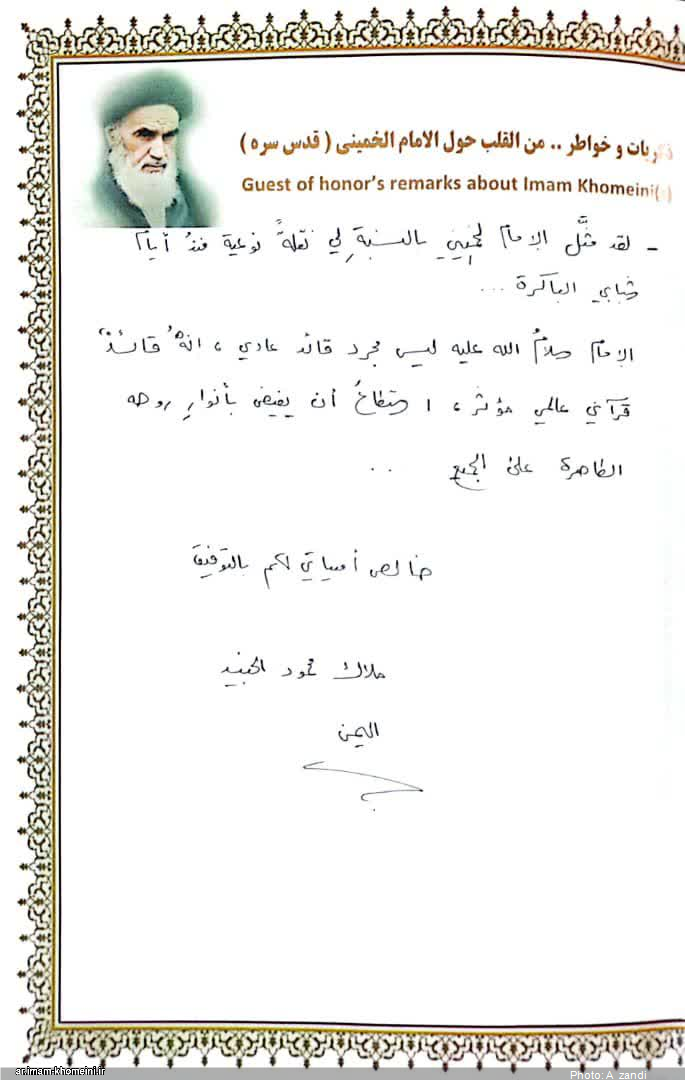 ذكريات و خواطر .. من القلب حول الامام الخمينی ( قدس سره )
Guest of honor's remarks about Imam Khomeini(
- لقد مثَّل الإمام الخميني بالنسبةِ لي نقلةً نوعية منذُ أيام
شبابي الباكرة ...
الإمام سلامُ الله عليه ليس مجرد قائد عادي ، انهُ قائدٌ
قرآني عالمي مؤثر ، استطاعُ أن يفيض بأنوارِ روحه
الطاهرة على الجميع ..
خالص أمنياتي لكم بالتوفيق
ملاك محمود الجنيد
اليمن
ar.imam-khomeini.ir
Photo: A. zandi